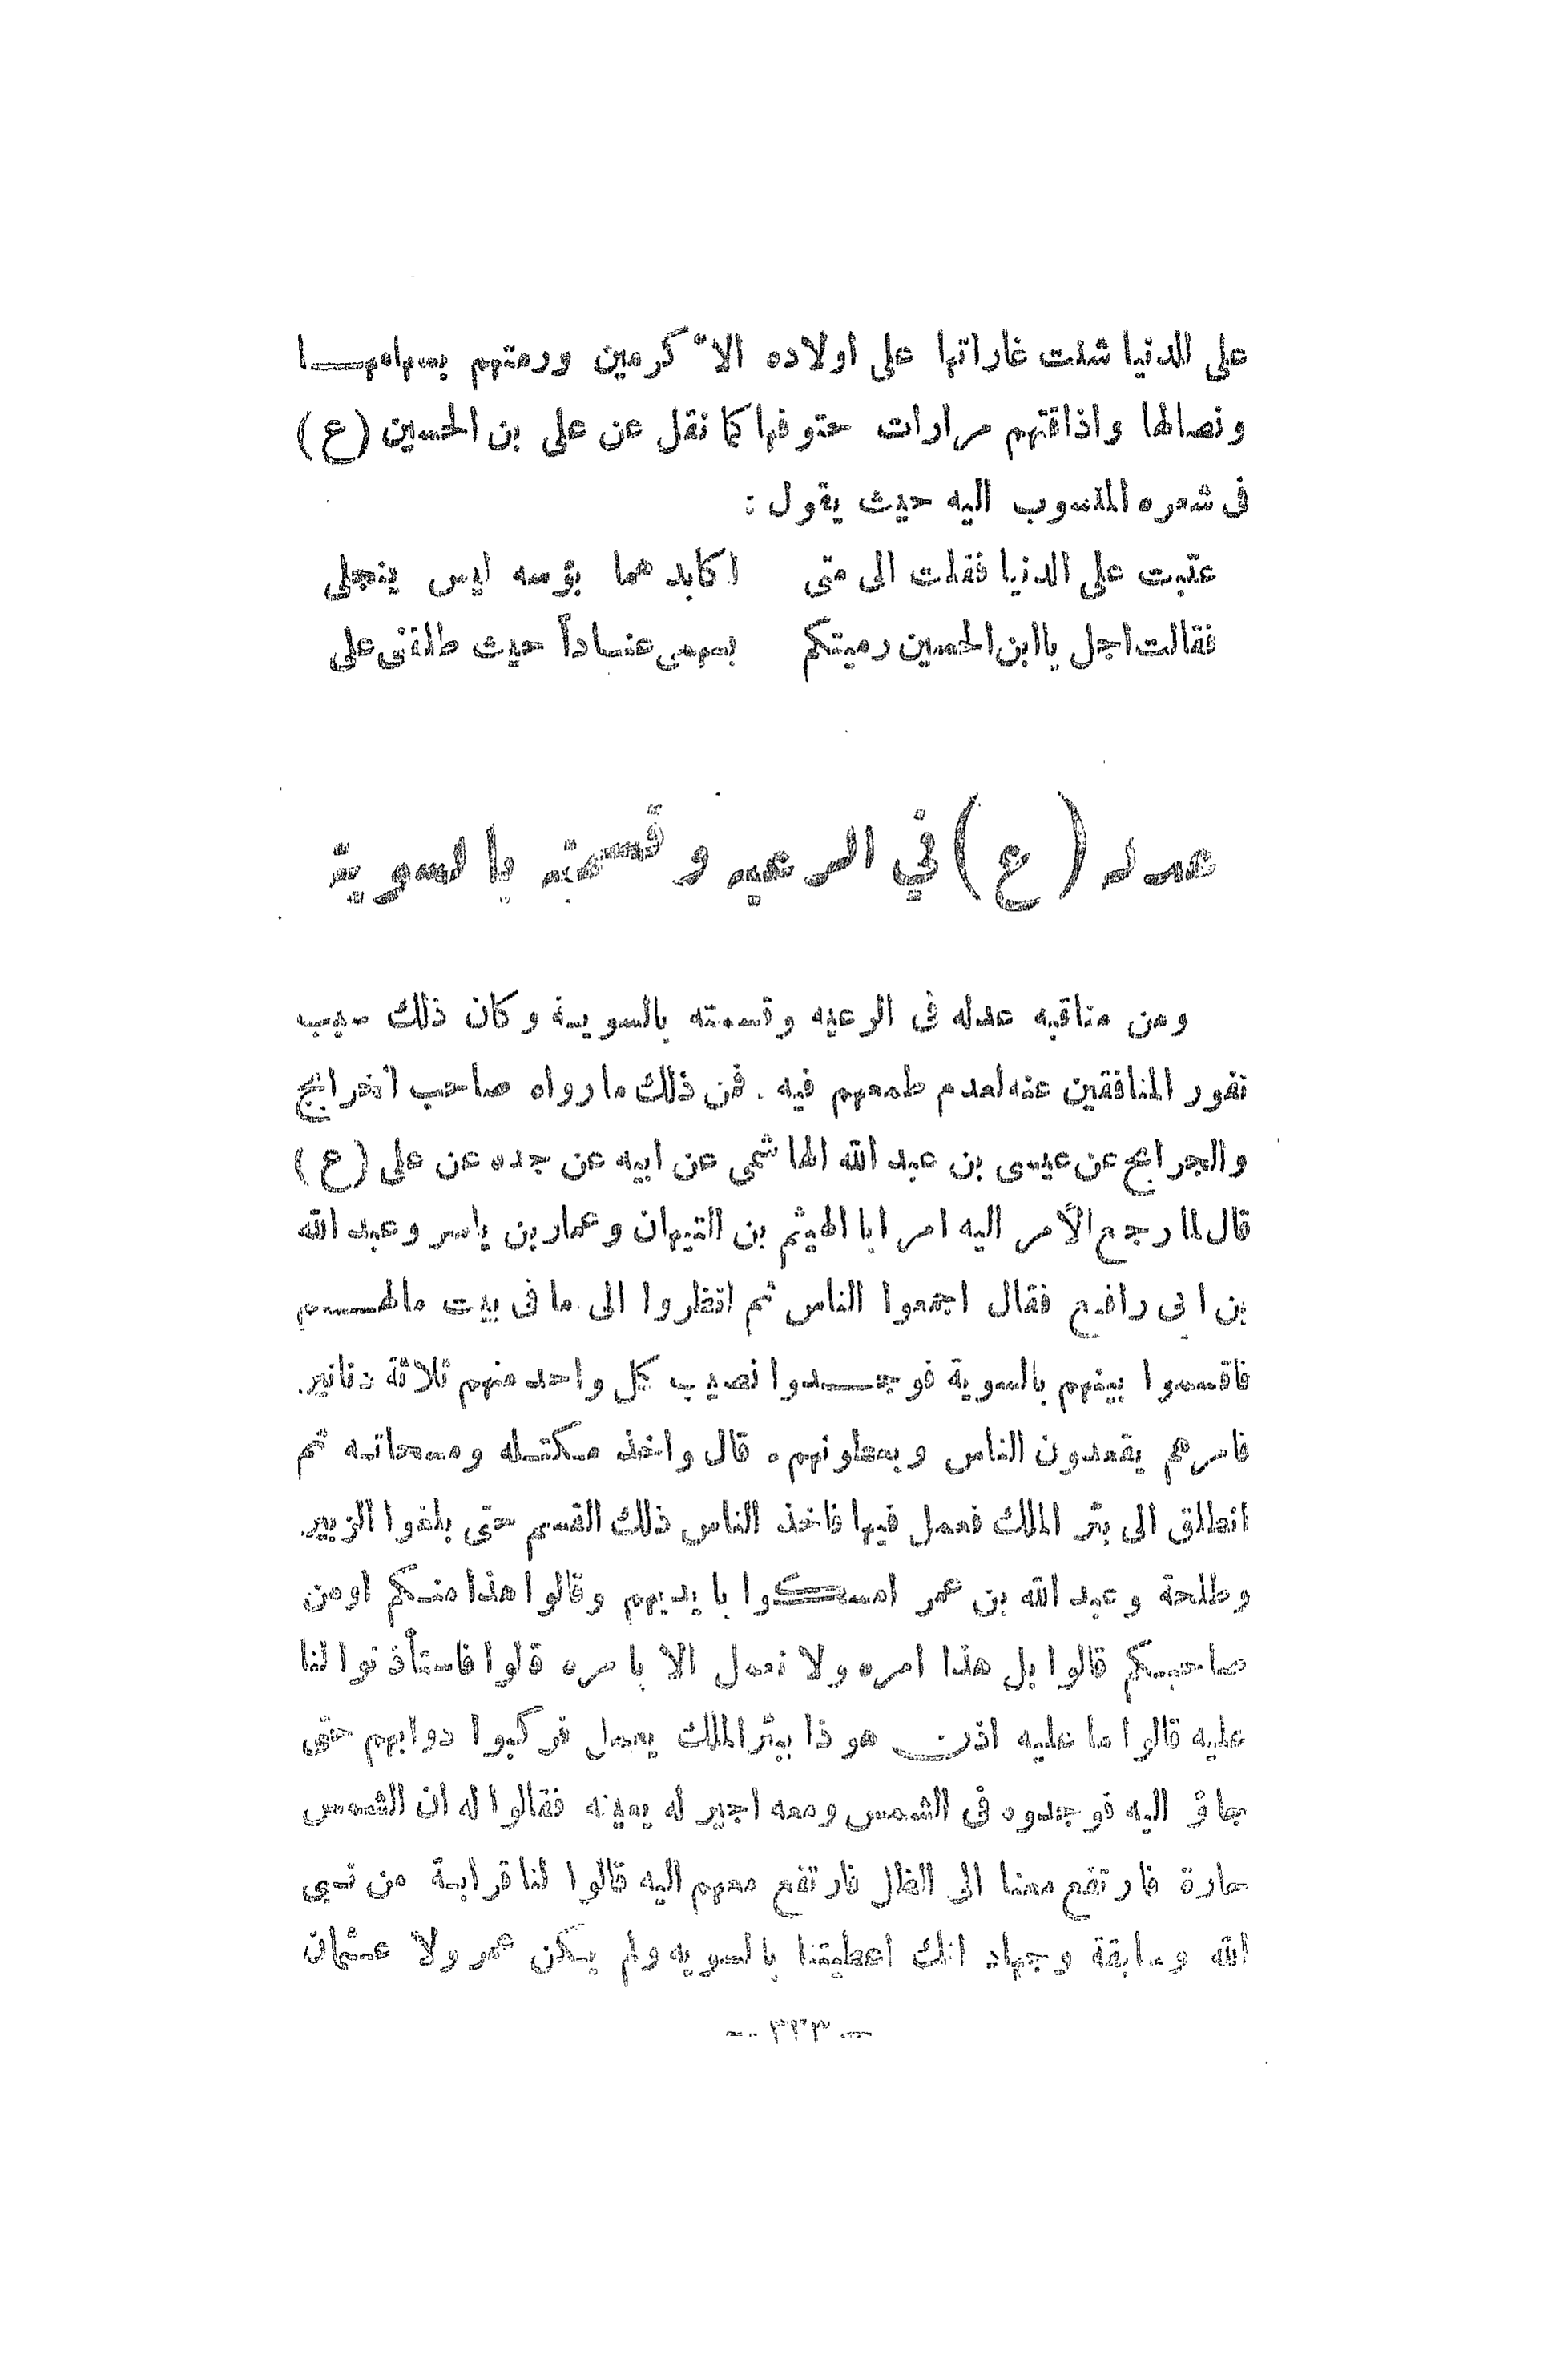 على الدنيا شنت غاراتها على اولاده الاكرمين ورمتهم بسهامها
ونصالها واذاقتهم مرارات حتوفها كما نقل عن على بن الحسين (ع)
فى شعره المنسوب اليه حيث يقول :
عتبت على الدنيا فقلت الى متى اكابد هما بؤسه ليس ينجلى
فقالت اجل ياابن الحسين رميتكم بسهمى عناداً حيث طلقنى على
عدله (ع) في الرعيه وقسمته بالسوية
ومن مناقبه عدله فى الرعيه وقسمته بالسوية وكان ذلك سبب
نفور المنافقين عنه لعدم طمعهم فيه . فمن ذلك ما رواه صاحب الخرايج
والجرايح عن عيسى بن عبد الله الهاشمى عن ابيه عن جده عن على (ع)
قال لما رجع الأمر اليه امر ابا الهيثم بن التيهان وعمار بن ياسر وعبد الله
بن ابى رافع فقال اجمعوا الناس ثم انظروا الى ما فى بيت مالهم
فاقسموا بينهم بالسوية فوجدوا نصيب كل واحد منهم ثلاثة دنانير.
فامرهم يقعدون الناس ويعطونهم . قال واخذ مكتله ومسحاته ثم
انطلق الى بئر الملك فعمل فيها فاخذ الناس ذلك القسم حتى بلغوا الزبير
وطلحة وعبد الله بن عمر امسكوا بايديهم وقالوا هذا منكم اومن
صاحبكم قالوا بل هذا امره ولا نعمل الا بامره قالوا فاستأذنوا لنا
عليه قالوا ما عليه اذن هو ذا ببئر الملك يعمل فركبوا دوابهم حتى
جاؤ اليه فوجدوه فى الشمس ومعه اجير له يعينه فقالوا له ان الشمس
حارة فارتفع معنا الى الظل فارتفع معهم اليه قالوا لنا قرابة من نبى
الله وسابقة وجهاد انك اعطيتنا بالسويه ولم يكن عمر ولا عثمان
— ٣٢٣ —